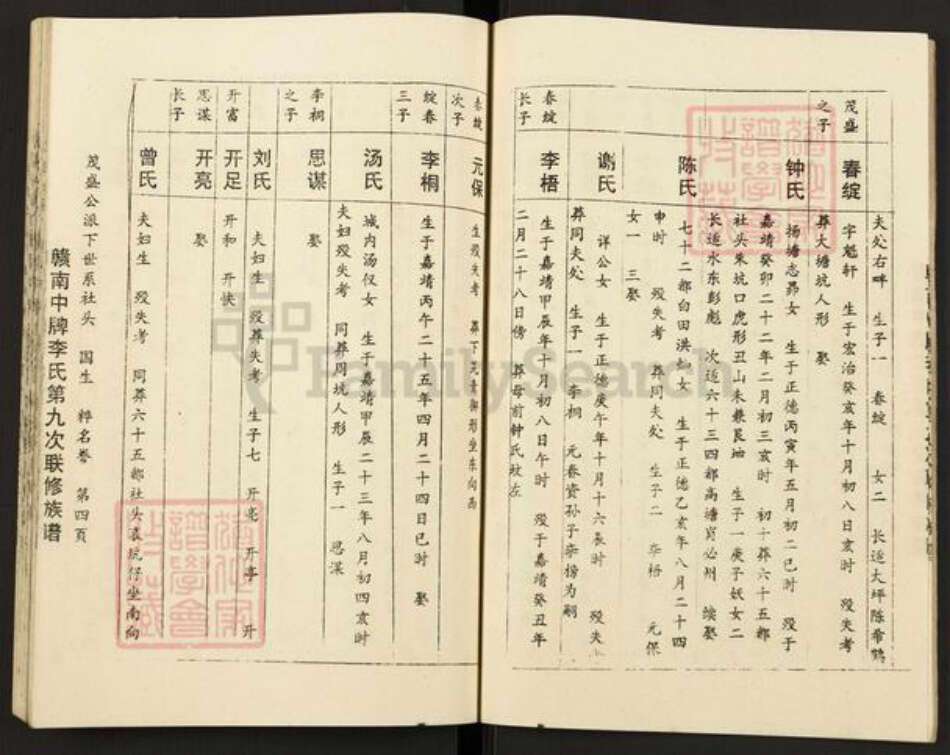 夫处右畔 生子一 春綻 女二 长适大坪陈希鹤
茂盛之子
春綻 字魁轩 生于宏治癸亥年十月初八日亥时 殁失考
葬大塘坑人形 娶
钟氏 扬塘志昴女 生于正德丙寅年五月初二巳时 殁于
嘉靖癸卯二十二年二月初三亥时 初十葬六十五都
社头朱坑口虎形丑山未兼艮坤 生子一庚子妖女二
长适水东彭彪 次适六十三四都高塘肖必州 续娶
陈氏 七十二都白田洪 女 生于正德乙亥年八月二十四
申时 殁失考 葬同夫处 生子二 李梧 元保
女一 三娶
谢氏 详公女 生于正德庚午年十月十六辰时 殁失
葬同夫处 生子一 李桐 元春资孙子栾榜为嗣
春綻长子
李梧 生于嘉靖甲辰年十月初八日午时 殁于嘉靖癸丑年
二月二十八日傍 葬母前钟氏蚊左
春綻次子
元保 生殁失考 葬下 形坐东向西
綻春三子
李桐 生于嘉靖丙午二十五年四月二十四日巳时 娶
汤氏 城内汤仅女 生于嘉靖甲辰二十三年八月初四亥时
夫妇殁失考 同葬周坑人形 生子一 思谋
李桐之子
思谋 娶
刘氏 夫妇生 殁葬失考 生子七 开亮 开亭 开
开富 开足 开和 开快
思谋长子
开亮 娶
曾氏 夫妇生 殁失考 同葬六十五都社头袁坑仔坐南向
茂盛公派下世系社头 国生 粹名誊 第四页
赣南中牌李氏第九次联修族谱
FamilySearch